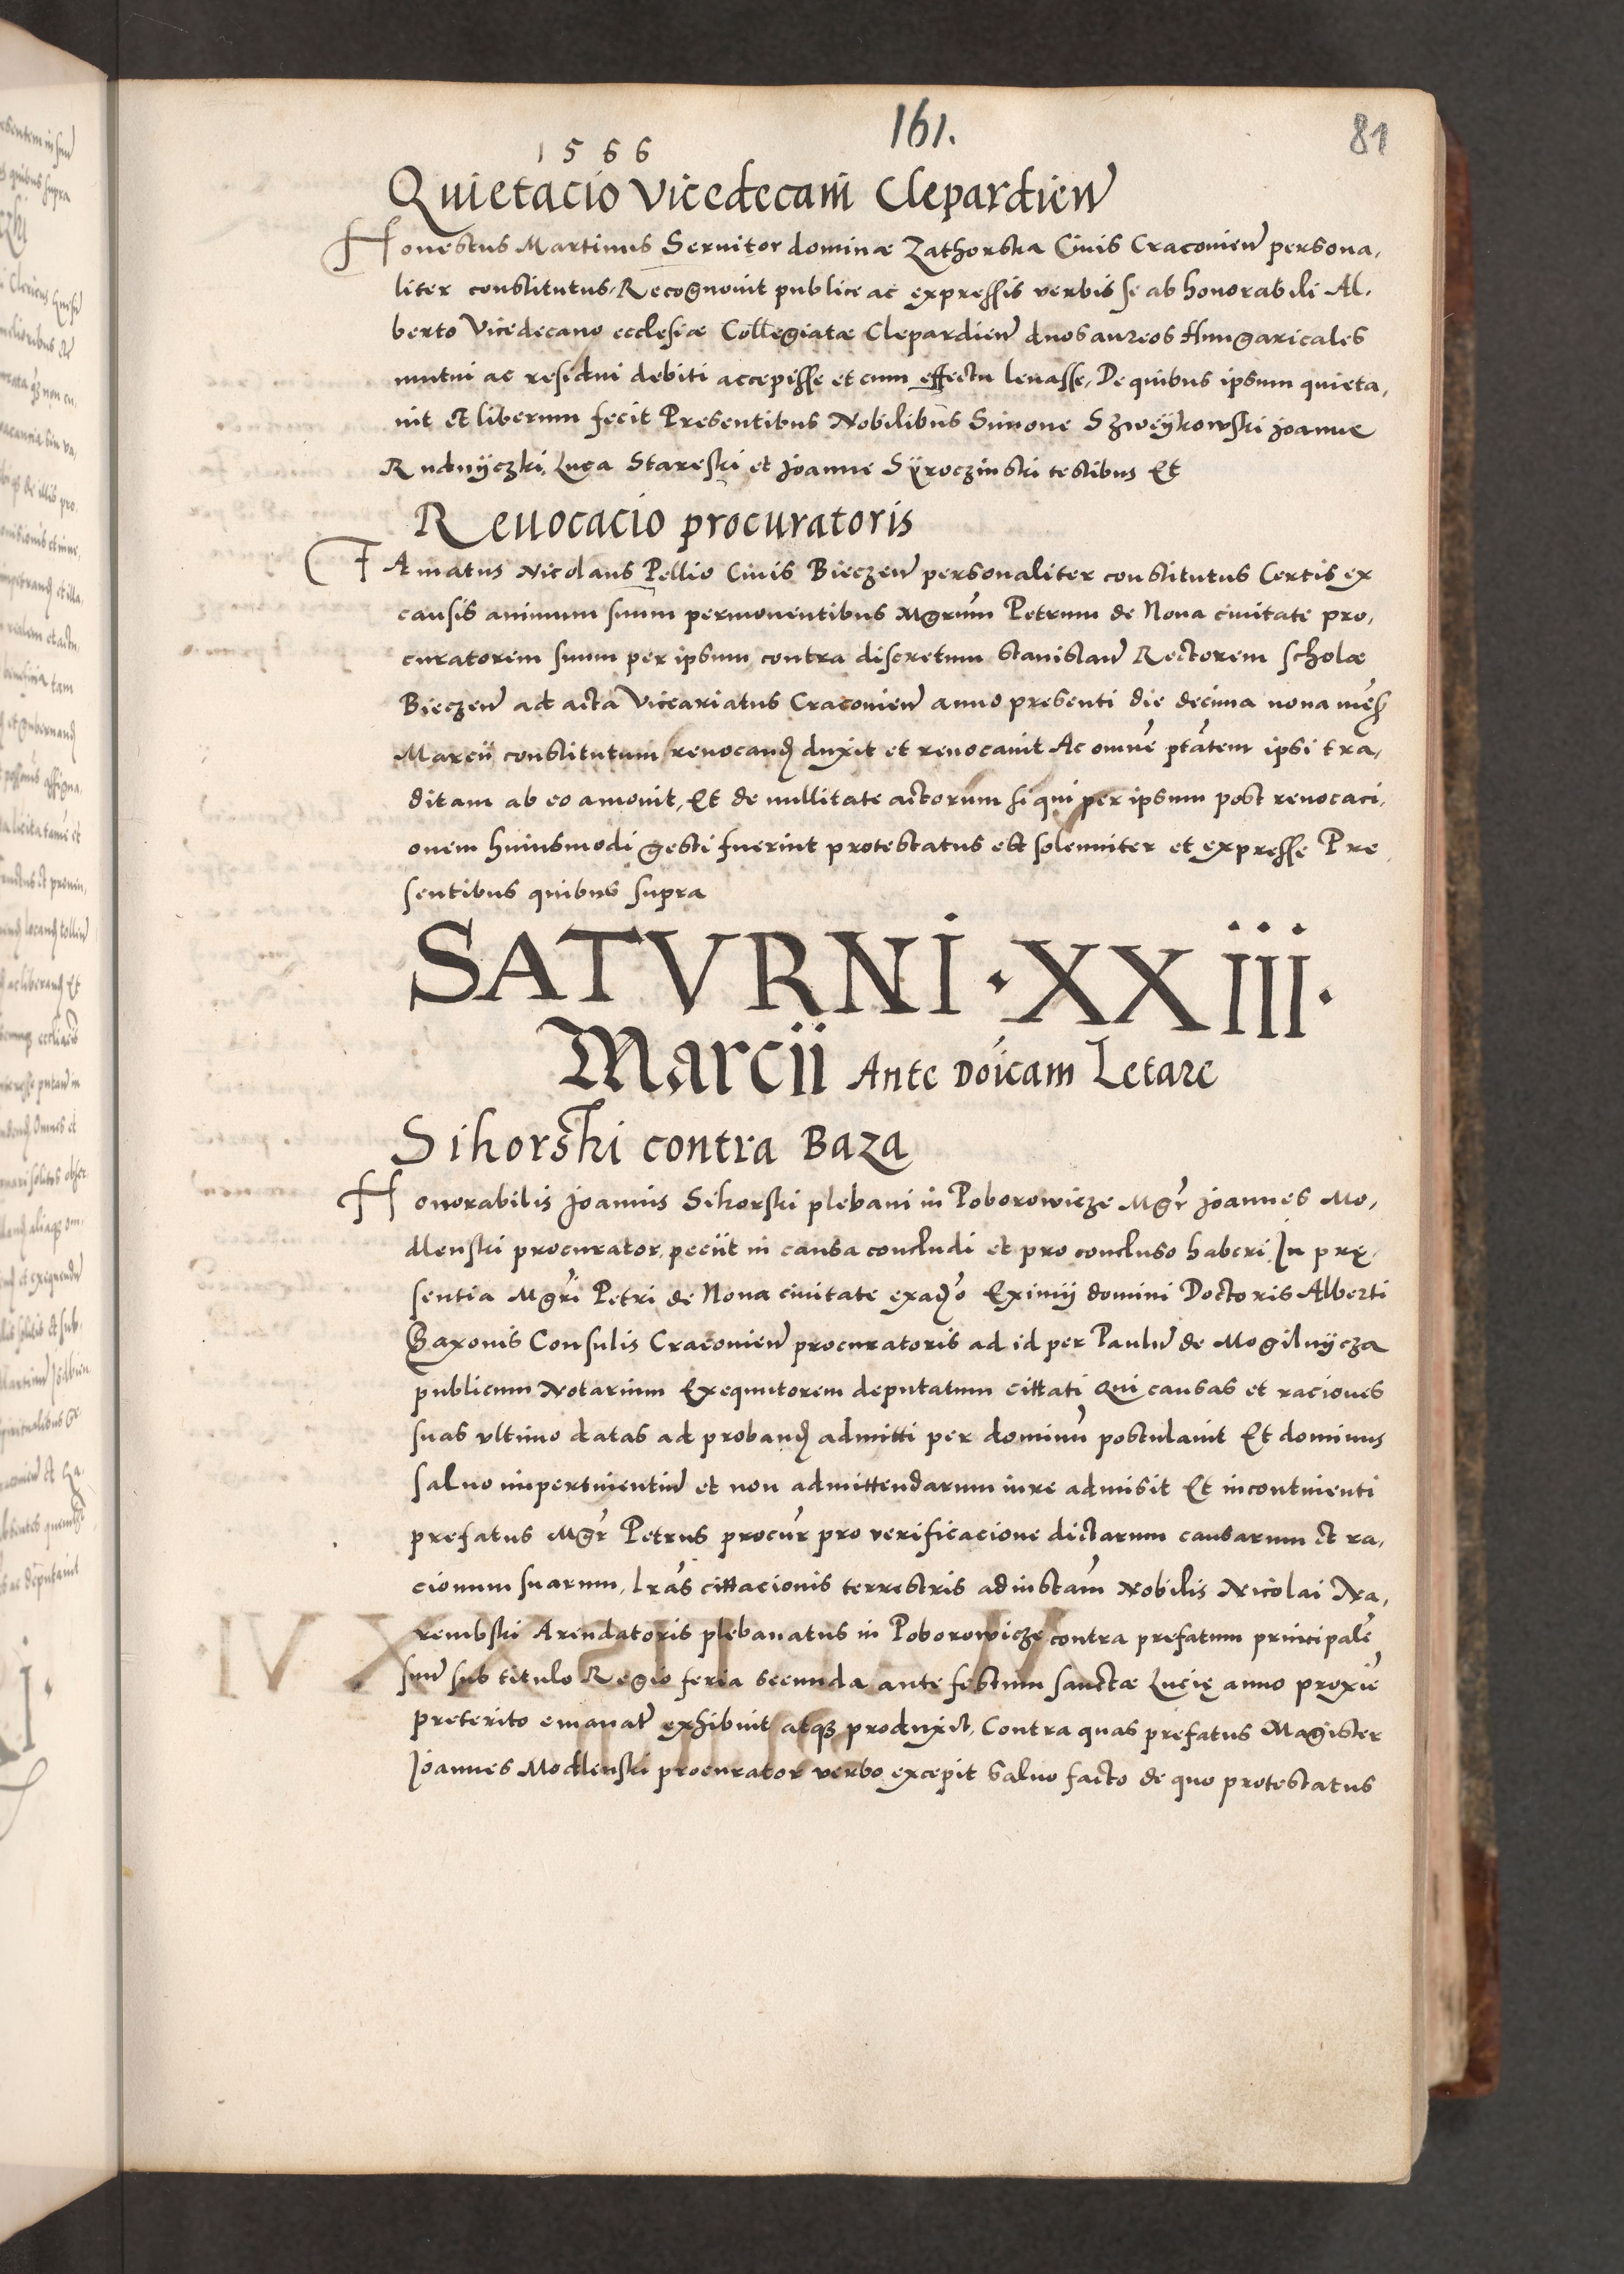 161.
81
1566
Quietacio Vicedecani Clepardien
Honestus Martinus Seruitor dominæ Zathorska Ciuis Cracouien persona,
liter constitutus, Recognouit publice ac expressis verbis se ab honorabili Al,
berto Vicedecano ecclesiæ Collegiatæ Clepardien duos aureos Hungaricales
mutui ac residui debiti accepisse et cum effectu leuasse, De quibus ipsum quieta,
uit et liberum fecit Presentibus Nobilibus Simone Szweykowski Joanne
Rudnÿczki, Luca Stareski et Joanne Sÿroczinski testibus Et
Reuocacio procuratoris
FAmatus Nicolaus Pellio Ciuis Bieczen personaliter constitutus Certis ex
causis animum suum permouentibus Mgrum Petrum de Noua ciuitate pro,
curatorem suum per ipsum contra discretum Stanislau Rectorem scholæ
Bieczen ad acta Vicariatus Cracouien anno presenti die decima nona mens
Marcii constitutum reuocand duxit et reuocauit Ac omne ptatem ipsi tra,
ditam ab eo amouit, Et de nullitate actorum si qui per ipsum post reuocaci,
onem huiusmodi gesti fuerint protestatus est solenniter et expresse Pre
sentibus quibus supra
SATVRNI · XXIII ·
Marcii Ante Doicam Letare
Sikorski contra Baza
Honorabilis Joannis Sikorski plebani in Poborowicze Mgr Joannes Mo,
dlenski procurator, peciit in causa concludi et pro concluso haberi In prę,
sentia Mgri Petri de Noua ciuitate exaduo Eximii domini Doctoris Alberti
Baxonis Consulis Cracouien procuratoris ad id per Paulu de Mogilnÿcza
publicum Notarium Exequutorem deputatum cittati Qui causas et raciones
suas vltimo datas ad proband admitti per dominu postulauit Et dominus
saluo impertinentiu et non admittendarum iure admisit Et incontinenti
prefatus Mgr Petrus procur pro verificacione dictarum causarum et ra,
cionum suarum, lras cittacionis terrestris ad instam Nobilis Nicolai Na,
rembski Arendatoris plebanatus in Poborowicze contra prefatum principale
suu sub titulo Regio feria secunda ante festum sanctæ Lucię anno proxie
preterito emanat exhibuit atque produxit, Contra quas prefatus Magister
Joannes Modlenski procurator verbo excepit saluo facto de quo protestatus